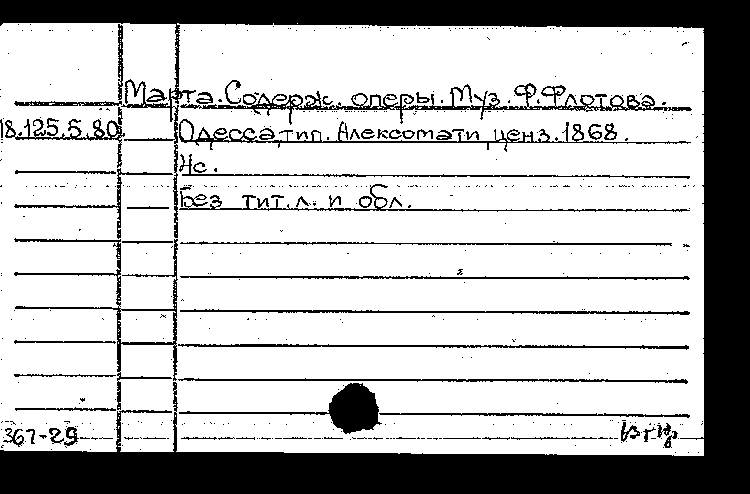 Марта. Содерж. оперы. Муз. Ф. Флотова.
18.125.5.80. Одесса, тип. Алексомати, ценз. 1868.
4с.
Без тит. л. и обл.
367-29